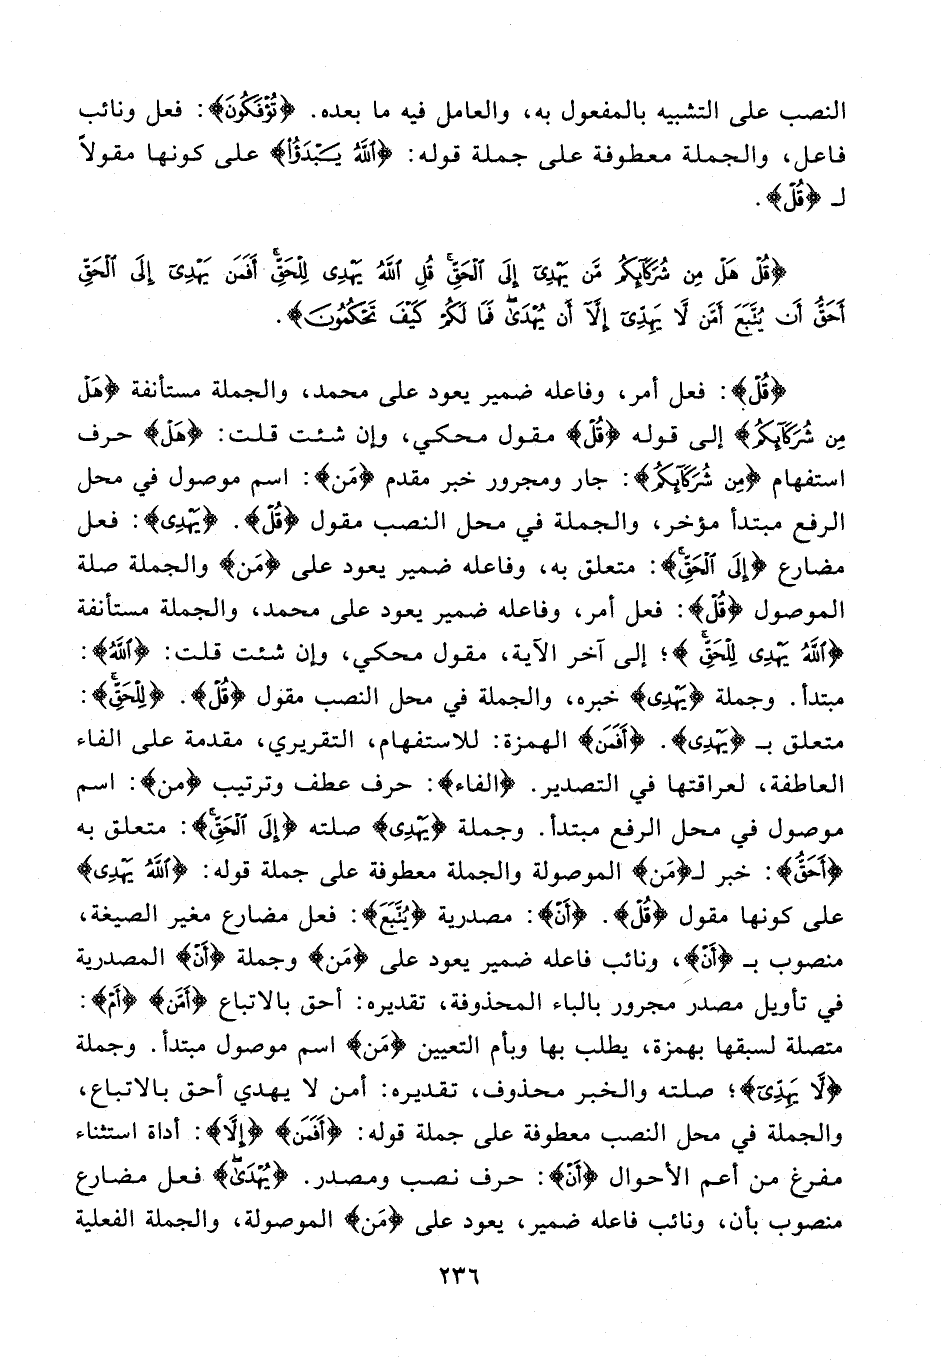 النصب على التشبيه بالمفعول به، والعامل فيه ما بعده. ﴿تُؤْفَكُونَ﴾: فعل ونائب
فاعل، والجملة معطوفة على جملة قوله: ﴿ٱللَّهُ يَبْدَؤُا۟﴾ على كونها مقولاً
لـ ﴿قُلْ﴾.
﴿قُلْ هَلْ مِن شُرَكَآئِكُم مَّن يَهْدِىٓ إِلَى ٱلْحَقِّ ۚ قُلِ ٱللَّهُ يَهْدِى لِلْحَقِّ ۗ أَفَمَن يَهْدِىٓ إِلَى ٱلْحَقِّ
أَحَقُّ أَن يُتَّبَعَ أَمَّن لَّا يَهِدِّىٓ إِلَّآ أَن يُهْدَىٰ ۖ فَمَا لَكُمْ كَيْفَ تَحْكُمُونَ﴾.
﴿قُلْ﴾: فعل أمر، وفاعله ضمير يعود على محمد، والجملة مستأنفة ﴿هَلْ
مِن شُرَكَآئِكُم﴾ إلى قوله ﴿قُلْ﴾ مقول محكي، وإن شئت قلت: ﴿هَلْ﴾ حرف
استفهام ﴿مِن شُرَكَآئِكُم﴾: جار ومجرور خبر مقدم ﴿مَن﴾: اسم موصول في محل
الرفع مبتدأ مؤخر، والجملة في محل النصب مقول ﴿قُلْ﴾. ﴿يَهْدِى﴾: فعل
مضارع ﴿إِلَى ٱلْحَقِّ ۚ﴾: متعلق به، وفاعله ضمير يعود على ﴿مَن﴾ والجملة صلة
الموصول ﴿قُلْ﴾: فعل أمر، وفاعله ضمير يعود على محمد، والجملة مستأنفة
﴿ٱللَّهُ يَهْدِى لِلْحَقِّ ۗ﴾؛ إلى آخر الآية، مقول محكي، وإن شئت قلت: ﴿ٱللَّهُ﴾:
مبتدأ. وجملة ﴿يَهْدِى﴾ خبره، والجملة في محل النصب مقول ﴿قُلْ﴾. ﴿لِلْحَقِّ ۗ﴾:
متعلق بـ ﴿يَهْدِى﴾. ﴿أَفَمَن﴾ الهمزة: للاستفهام، التقريري، مقدمة على الفاء
العاطفة، لعراقتها في التصدير. ﴿الفاء﴾: حرف عطف وترتيب ﴿من﴾: اسم
موصول في محل الرفع مبتدأ. وجملة ﴿يَهْدِى﴾ صلته ﴿إِلَى ٱلْحَقِّ ۚ﴾: متعلق به
﴿أَحَقُّ﴾: خبر لـ﴿مَن﴾ الموصولة والجملة معطوفة على جملة قوله: ﴿ٱللَّهُ يَهْدِى﴾
على كونها مقول ﴿قُلْ﴾. ﴿أَنْ﴾: مصدرية ﴿يُتَّبَعَ﴾: فعل مضارع مغير الصيغة،
منصوب بـ ﴿أَنْ﴾، ونائب فاعله ضمير يعود على ﴿مَن﴾ وجملة ﴿أَنْ﴾ المصدرية
في تأويل مصدر مجرور بالباء المحذوفة، تقديره: أحق بالاتباع ﴿أَمَّن﴾ ﴿أَمْ﴾:
متصلة لسبقها بهمزة، يطلب بها وبأم التعيين ﴿مَن﴾ اسم موصول مبتدأ. وجملة
﴿لَّا يَهِدِّىٓ﴾؛ صلته والخبر محذوف، تقديره: أمن لا يهدي أحق بالاتباع،
والجملة في محل النصب معطوفة على جملة قوله: ﴿أَفَمَن﴾ ﴿إِلَّا﴾: أداة استثناء
مفرغ من أعم الأحوال ﴿أَنْ﴾: حرف نصب ومصدر. ﴿يُهْدَىٰ ۖ﴾ فعل مضارع
منصوب بأن، ونائب فاعله ضمير، يعود على ﴿مَن﴾ الموصولة، والجملة الفعلية
٢٣٦